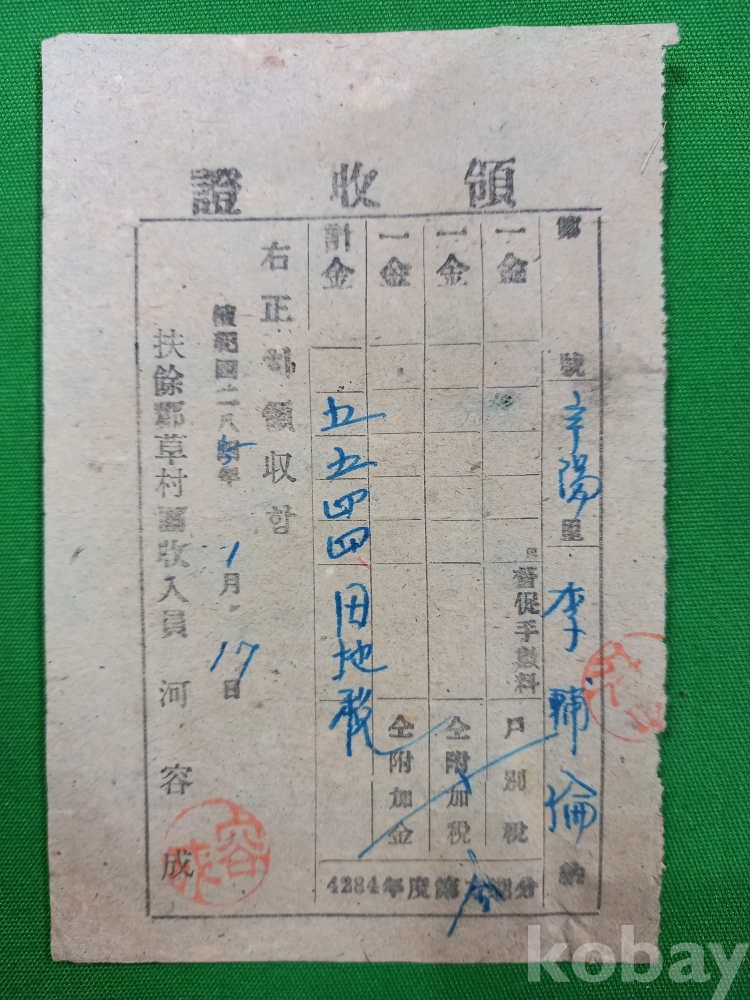 領收證
第 號 辛陽里 李輔倫 納
一金 督促手數料 戶別稅
一金 仝附加稅
一金 仝附加金
計金 五五四四 田地稅
4284年度第 期分
右正히領収함
檀紀四二八5年 1月 17日
扶餘郡草村面收入員 河容成
容成
kobay